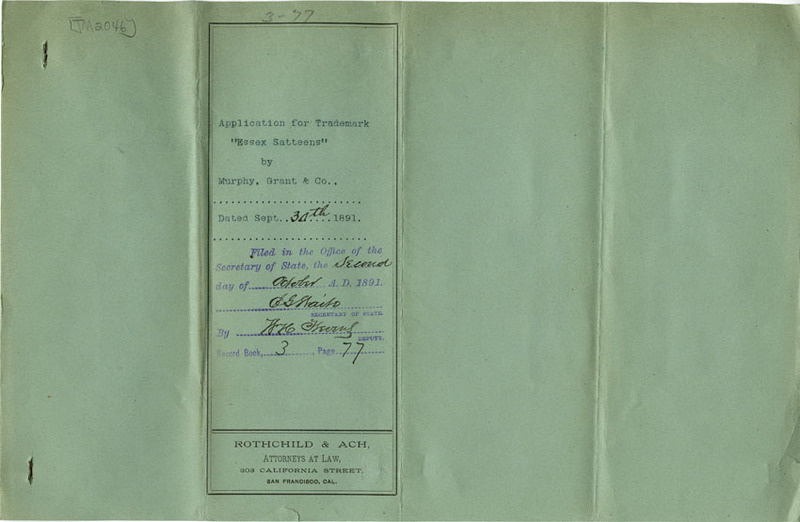 [TM2046]
3-77
Application for Trademark
"Essex Satteens"
by
Murphy, Grant & Co.,
Dated Sept. 30th 1891.
Filed in the Office of the
Secretary of State, the Second
day of October A. D. 1891.
E G Waite
SECRETARY OF STATE.
By W H
DEPUTY.
Record Book, 3, Page 77
ROTHCHILD & ACH,
ATTORNEYS AT LAW,
303 CALIFORNIA STREET,
SAN FRANCISCO, CAL.